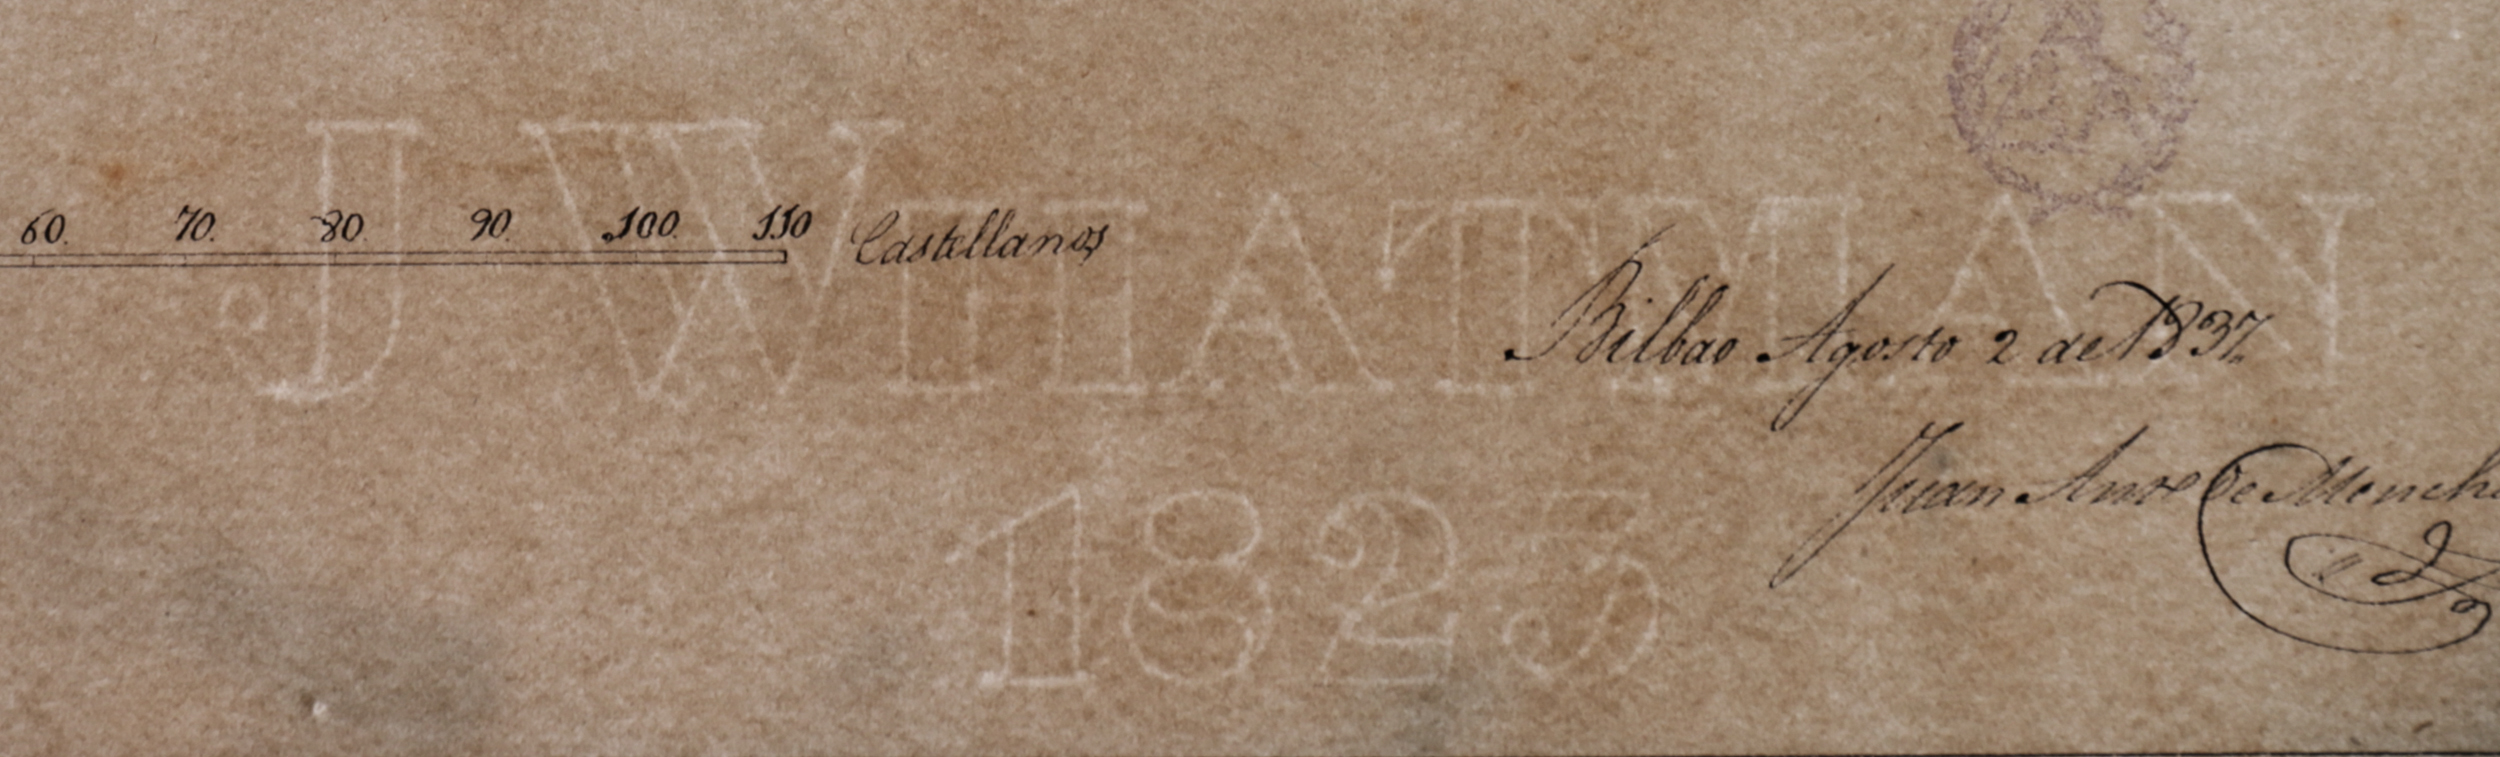 60. 70. 80. 90. 100. 110 Castellanos
J WHATMAN
Bilbao Agosto 2 de 1837.
Juan Anto de
1825